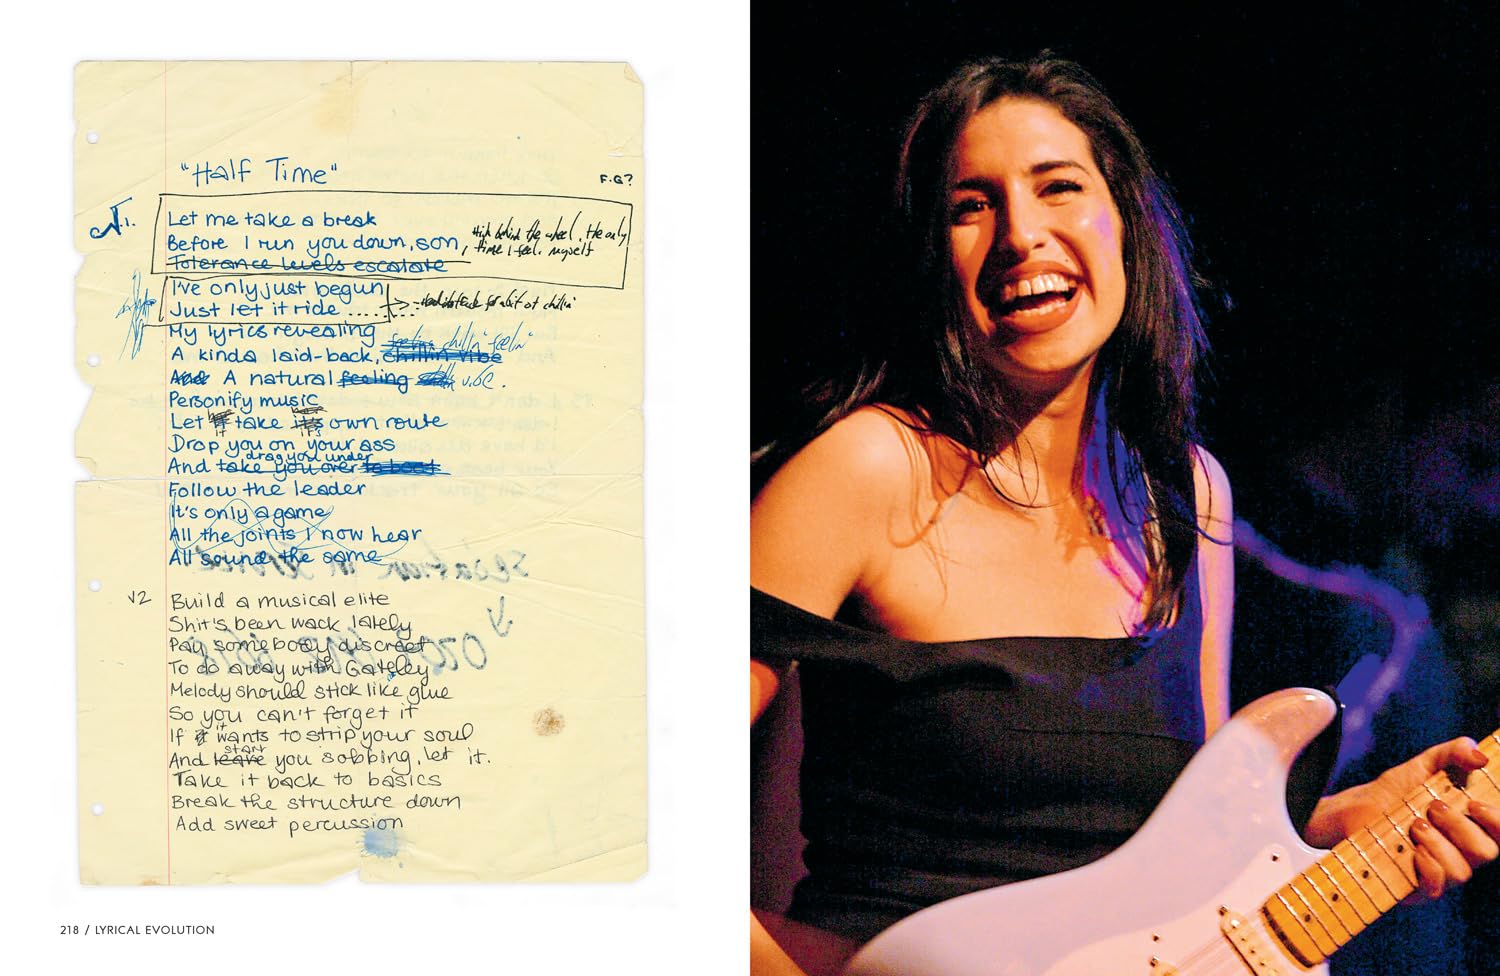 "Half Time"
F.G?
V1.
Let me take a break
Before I run you down, son,
High behind the wheel, the only
time I feel myself
Tolerance levels escalate
I've only just begun
Just let it ride .....
My lyrics revealing
feeling chillin' feelin'
A kinda laid-back, chillin vibe
And A natural feeling vibe.
Personify music
Let it take its own route
it it's
Drop you on your ass
drag you under
And take you over to boot
Follow the leader
It's only a game
All the joints I now hear
All sound the same
V2
Build a musical elite
Shit's been wack lately
Pay somebody discreet
To do away with Gateley
Melody should stick like glue
So you can't forget it
it
If it wants to strip your soul
start
And leave you sobbing, let it.
Take it back to basics
Break the structure down
Add sweet percussion
218 / LYRICAL EVOLUTION